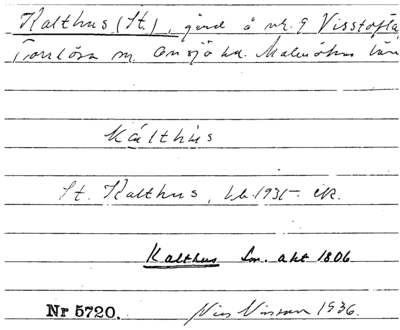 Kalthus (St.), gård å nr. 9 Visstofta
Torrlösa sn. Onsjö hd. Malmöhus län
Kálthùs
St. Kalthus, kb. 1935 ek.
Kalthus Sm. akt 1806
Nr 5720. 1936.